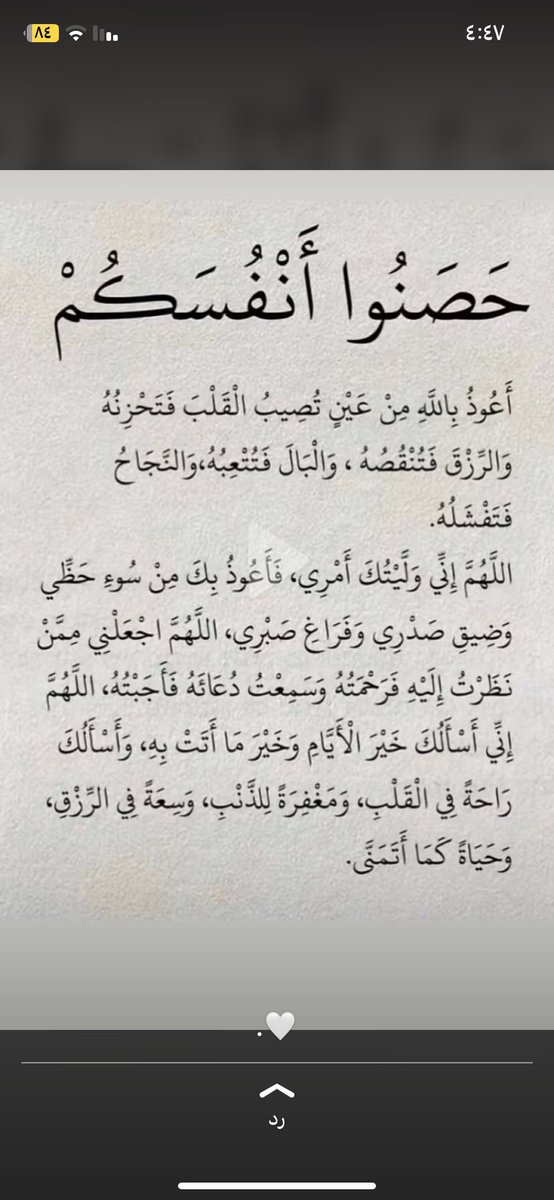 ٨٤
٤:٤٧
حَصَنُوا أَنْفُسَكُمْ
أَعُوذُ بِاللَّهِ مِنْ عَيْنٍ تُصِيبُ الْقَلْبَ فَتَحْزِنُهُ
وَالرِّزْقَ فَتُنْقُصُهُ ، وَالْبَالَ فَتُتْعِبُهُ،وَالنَّجَاحُ
فَتَفْشَلُهُ.
اللَّهُمَّ إِنِّي وَلَّيْتُكَ أَمْرِي، فَأَعُوذُ بِكَ مِنْ سُوءِ حَظِّي
وَضِيقِ صَدْرِي وَفَرَاغِ صَبْرِي، اللَّهُمَّ اجْعَلْنِي مِمَّنْ
نَظَرْتُ إِلَيْهِ فَرَحْمَتُهُ وَسَمِعْتُ دُعَائَهُ فَأَجَبْتُهُ، اللَّهُمَّ
إِنِّي أَسْأَلُكَ خَيْرَ الْأَيَّامِ وَخَيْرَ مَا أَتَتْ بِهِ، وَأَسْأَلُكَ
رَاحَةً فِي الْقَلْبِ، وَمَغْفِرَةً لِلذَّنْبِ، وَسِعَةً فِي الرِّزْقِ،
وَحَيَاةً كَمَا أَتَمَنَّى.
🤍.
رد